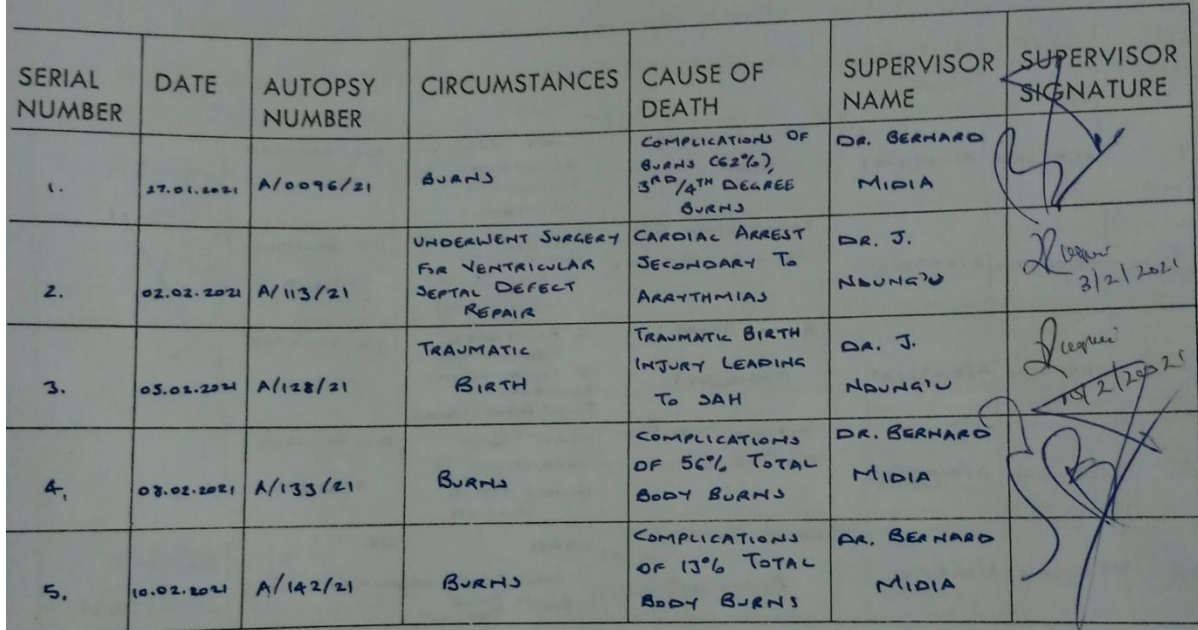 SERIAL NUMBER | DATE | AUTOPSY NUMBER | CIRCUMSTANCES | CAUSE OF DEATH | SUPERVISOR NAME | SUPERVISOR SIGNATURE
1. | 27.01.2021 | A/0096/21 | BURNS | COMPLICATIONS OF BURNS (62%), 3RD/4TH DEGREE BURNS | DR. BERNARD MIDIA
2. | 02.02.2021 | A/113/21 | UNDERWENT SURGERY FOR VENTRICULAR SEPTAL DEFECT REPAIR | CARDIAC ARREST SECONDARY TO ARRYTHMIAS | DR. J. NDUNG'U | 3/2/2021
3. | 05.02.2021 | A/128/21 | TRAUMATIC BIRTH | TRAUMATIC BIRTH INJURY LEADING TO SAH | DR. J. NDUNG'U
4. | 08.02.2021 | A/133/21 | BURNS | COMPLICATIONS OF 56% TOTAL BODY BURNS | DR. BERNARD MIDIA
5. | 10.02.2021 | A/142/21 | BURNS | COMPLICATIONS OF 13% TOTAL BODY BURNS | DR. BERNARD MIDIA